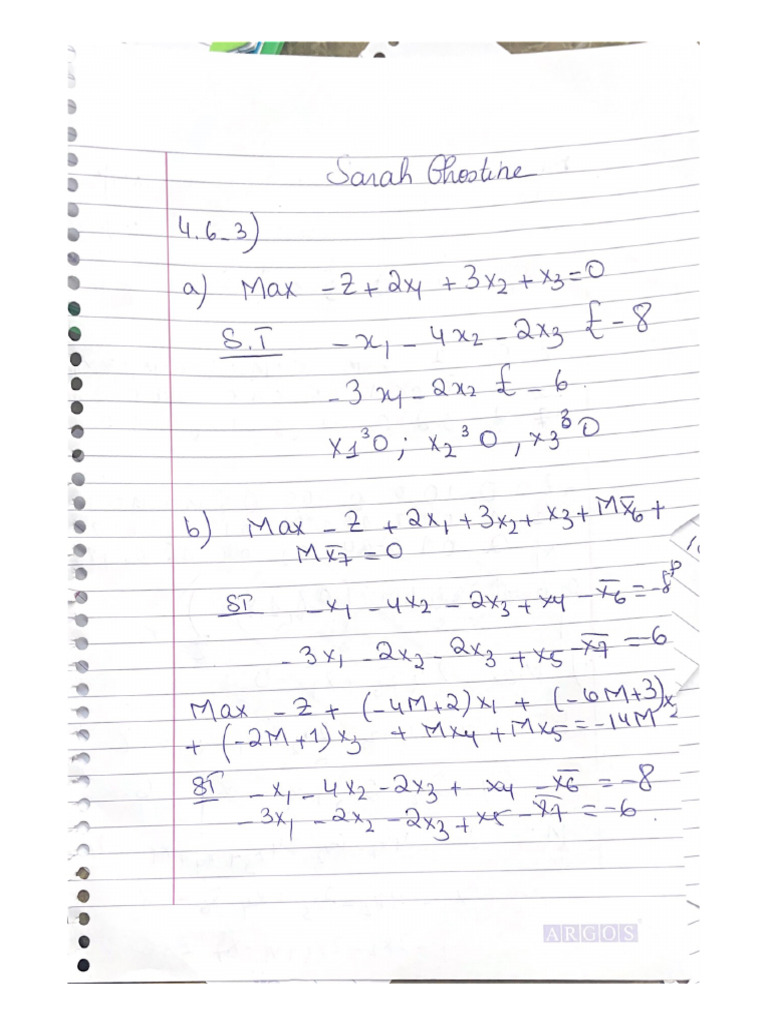 Sarah Ghostine
4.6-3)
a) Max -Z + 2x₁ + 3x₂ + x₃ = 0
S.T -x₁ - 4x₂ - 2x₃ £ -8
-3x₁ - 2x₂ £ -6.
x1³0 ; x₂³0 , x₃³0
b) Max -Z + 2x₁ + 3x₂ + x₃ + Mx̄₆ +
Mx̄₇ = 0
ST -x₁ - 4x₂ - 2x₃ + x₄ - x̄₆ = -8
-3x₁ - 2x₂ - 2x₃ + x₅ - x̄₇ = 6
Max -Z + (-4M+2)x₁ + (-6M+3)x₂
+ (-2M+1)x₃ + Mx₄ + Mx₅ = -14M
ST -x₁ - 4x₂ - 2x₃ + x₄ - x̄₆ = -8
-3x₁ - 2x₂ - 2x₃ + x₅ - x̄₇ = -6.
ARGOS